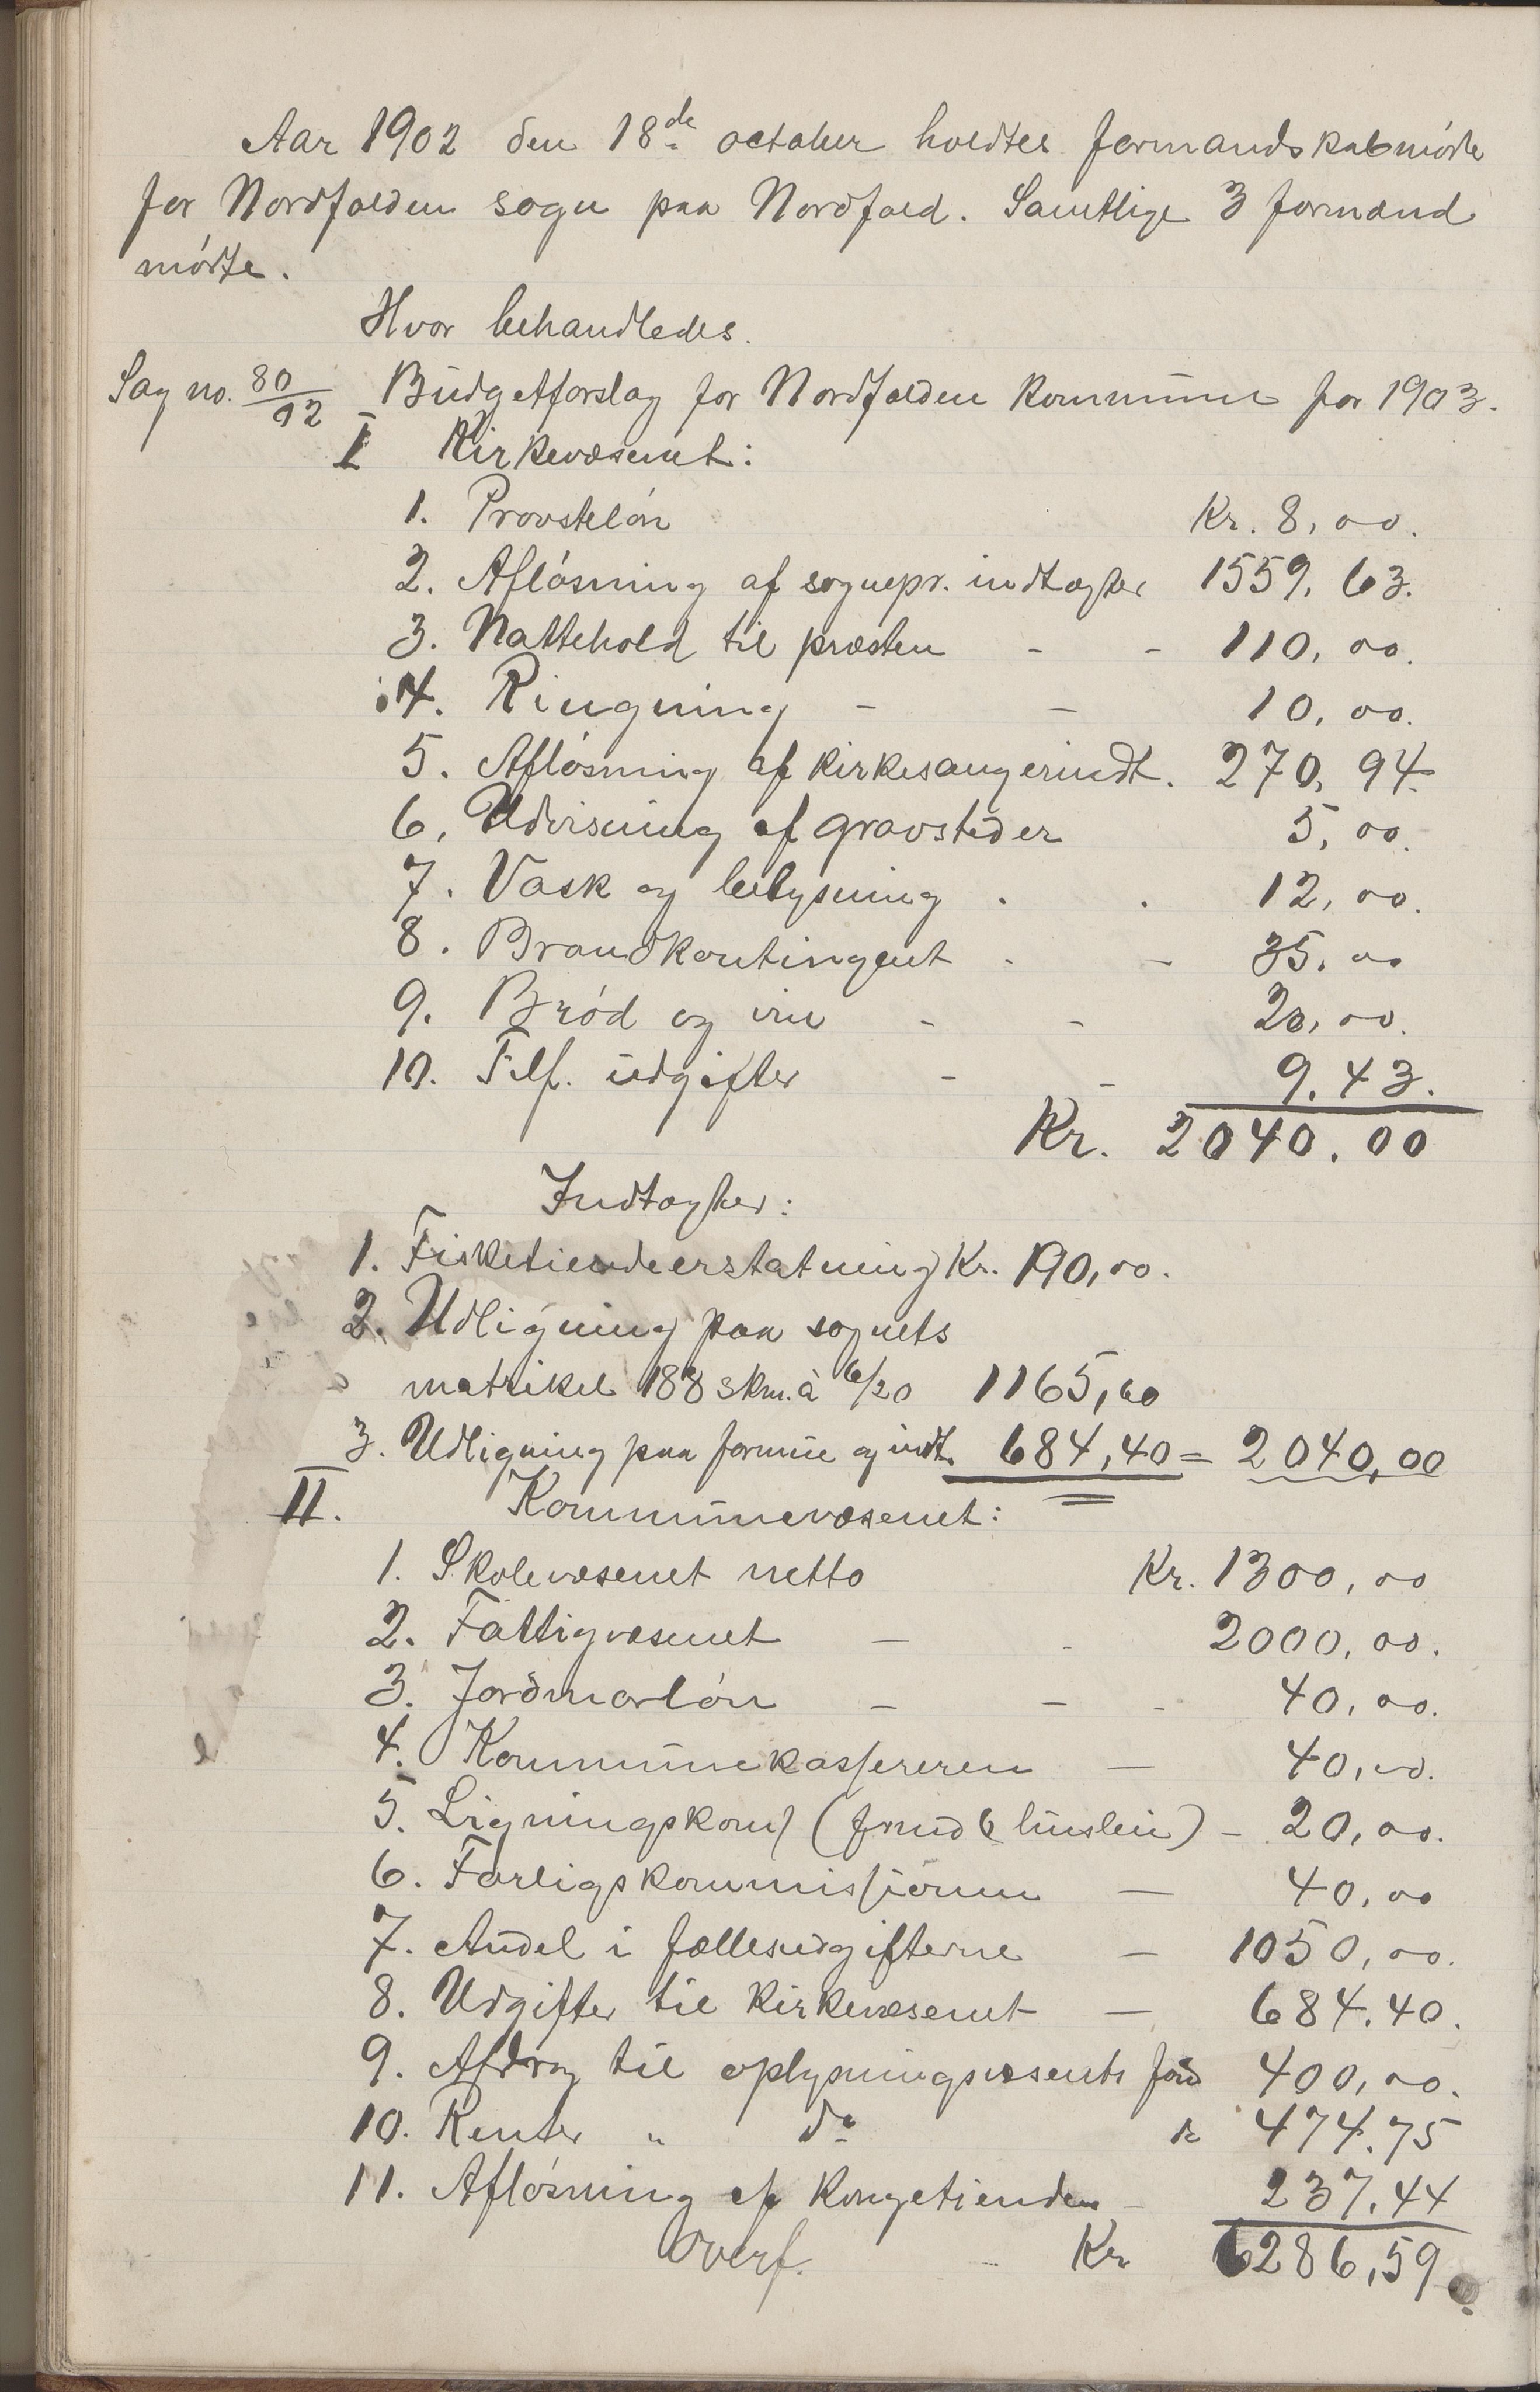 Aar 1902 den 18de october holdtes formandskabmøde
for Nordfolden sogn paa Nordfold. Samtlige 3 formænd
mødte.
Hvor behandledes.
Sag no. 80/02 Budgetforslag for Nordfolden kommune for 1903.
I Kirkevæsenet:
1. Provsteløn Kr. 8,00.
2. Afløsning af sognepr. indtægter 1559,63.
3. Nattehold til præsten - - 110,00.
4. Ringning - - 10,00.
5. Afløsning af kirkesangerindt. 270,94
6. Udvisning af gravsteder 5,00.
7. Vask og belysning . . 12,00.
8. Brandkontingent - - 35,00
9. Brød og vin - - 20,00.
10. Tilf. udgifter - - 9,43.
Kr. 2040.00
Indtægter:
1. Fisketiendeerstatning Kr. 190,00.
2. Udligning paa sognets
matrikel 188 skm. à 6/20 1165,60
3. Udligning paa formue og indt. 684,40 = 2040,00
II. Kommunevæsenet:
1. Skolevæsenet netto Kr. 1300,00
2. Fattigvæsenet - - 2000,00.
3. Jordmorløn - - - 40,00.
4. Kommunekassereren - 40,00.
5. Ligningskom - 20,00.
6. Forligskommissionen - 40,00
7. Andel i fællesudgifterne - 1050,00.
8. Udgifter til kirkevæsenet - 684.40.
9. Afdrag til oplysningsvæsents fond 400,00.
10. Renter " do 474.75
11. Afløsning af kongetienden - 237.44
Overf. - Kr 6286,59